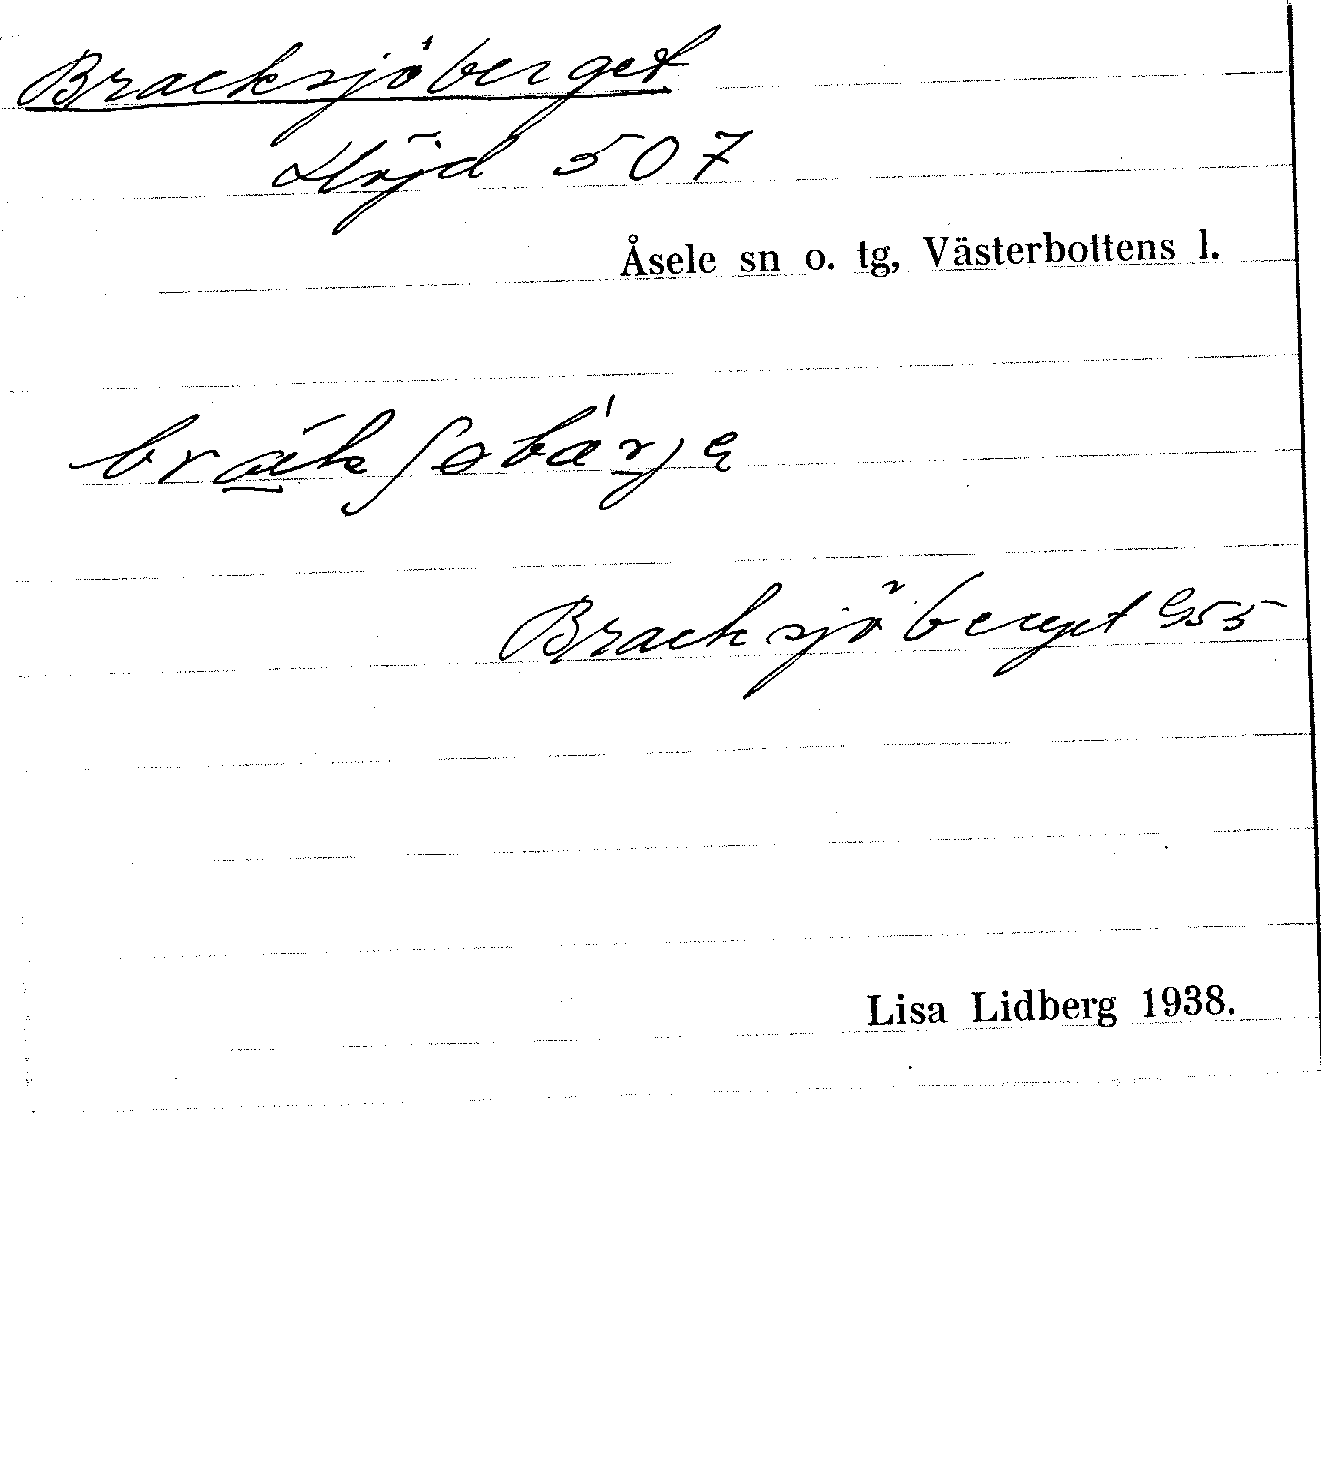 Bracksjöberget
Höjd 507
Åsele sn o. tg, Västerbottens l.
Bracksjöberget G55
Lisa Lidberg 1938.